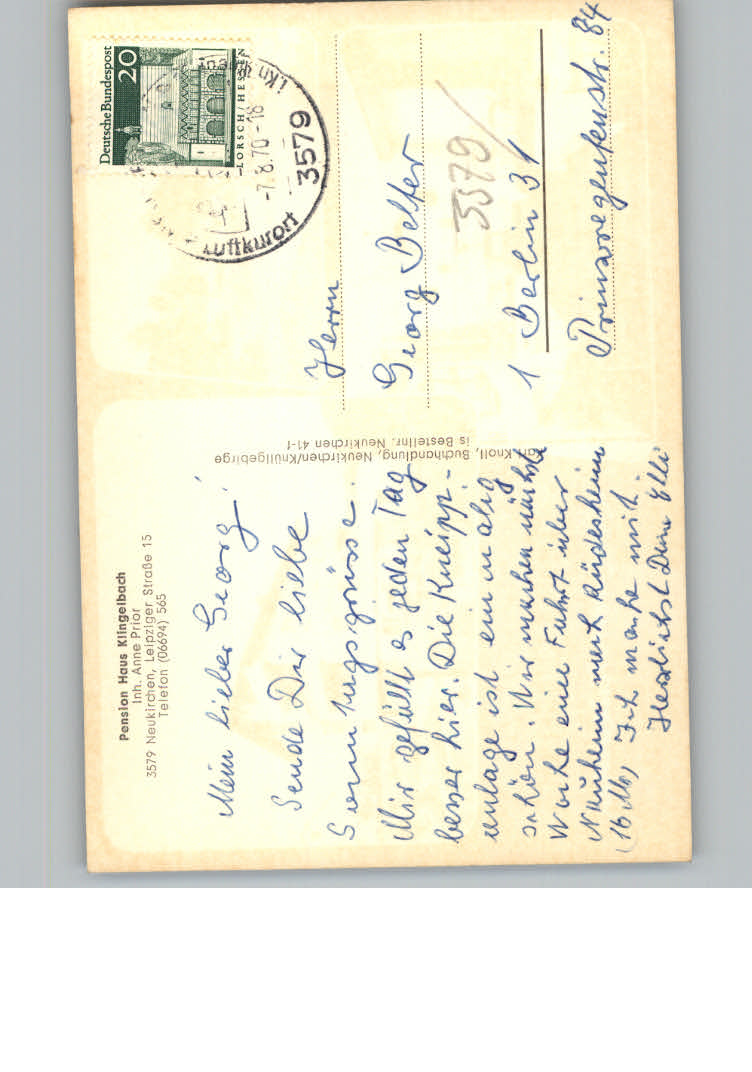 Pension Haus Klingelbach
Inh. Anne Prior
3579 Neukirchen, Leipziger Straße 15
Telefon (06694) 565
Mein lieber Georg!
Sende Dir liebe
Sonntagsgrüsse.
Mir gefällt es jeden Tag
besser hier. Die Kneipp-
anlage ist einmalig
schön. Wir machen nächste
Woche eine Fahrt über
Nauheim nach Rüdesheim
(16 M), Ich mache mit.
Herzlichst Deine Elli
Knoll, Buchhandlung, Neukirchen/Knüllgebirge
is Bestellnr. Neukirchen 41-f
Deutsche Bundespost
20
LORSCH/HESSEN
i. Knüllgeb
-7.8.70-18
3579
Luftkurort
Herrn
Georg Belter
3579/
1 Berlin 31
Prinzregentenstr. 84